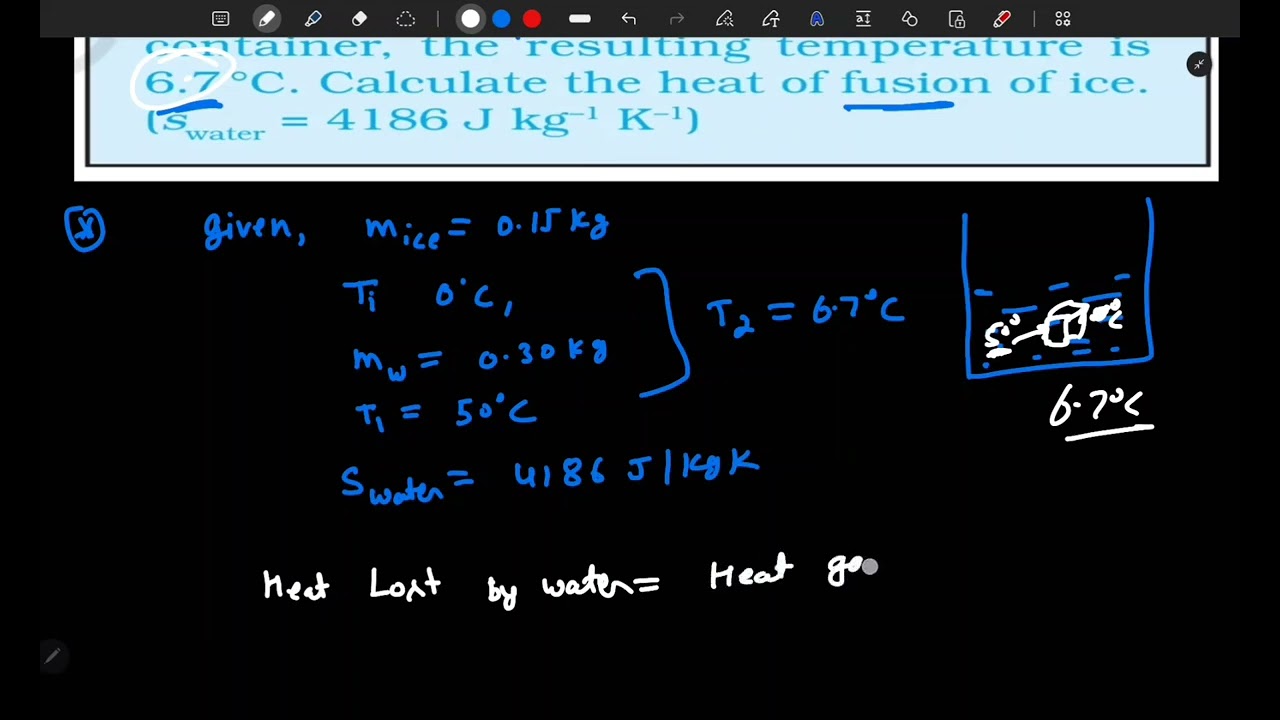 container, the resulting temperature is
6.7°C. Calculate the heat of fusion of ice.
(s_water = 4186 J kg⁻¹ K⁻¹)
given, m_ice = 0.15 kg
T_i 0°C,
T_2 = 6.7°C
m_w = 0.30 kg
T_1 = 50°C
S_water = 4186 J/kg K
50° 0°C
6.7°C
Heat Lost by water = Heat ga